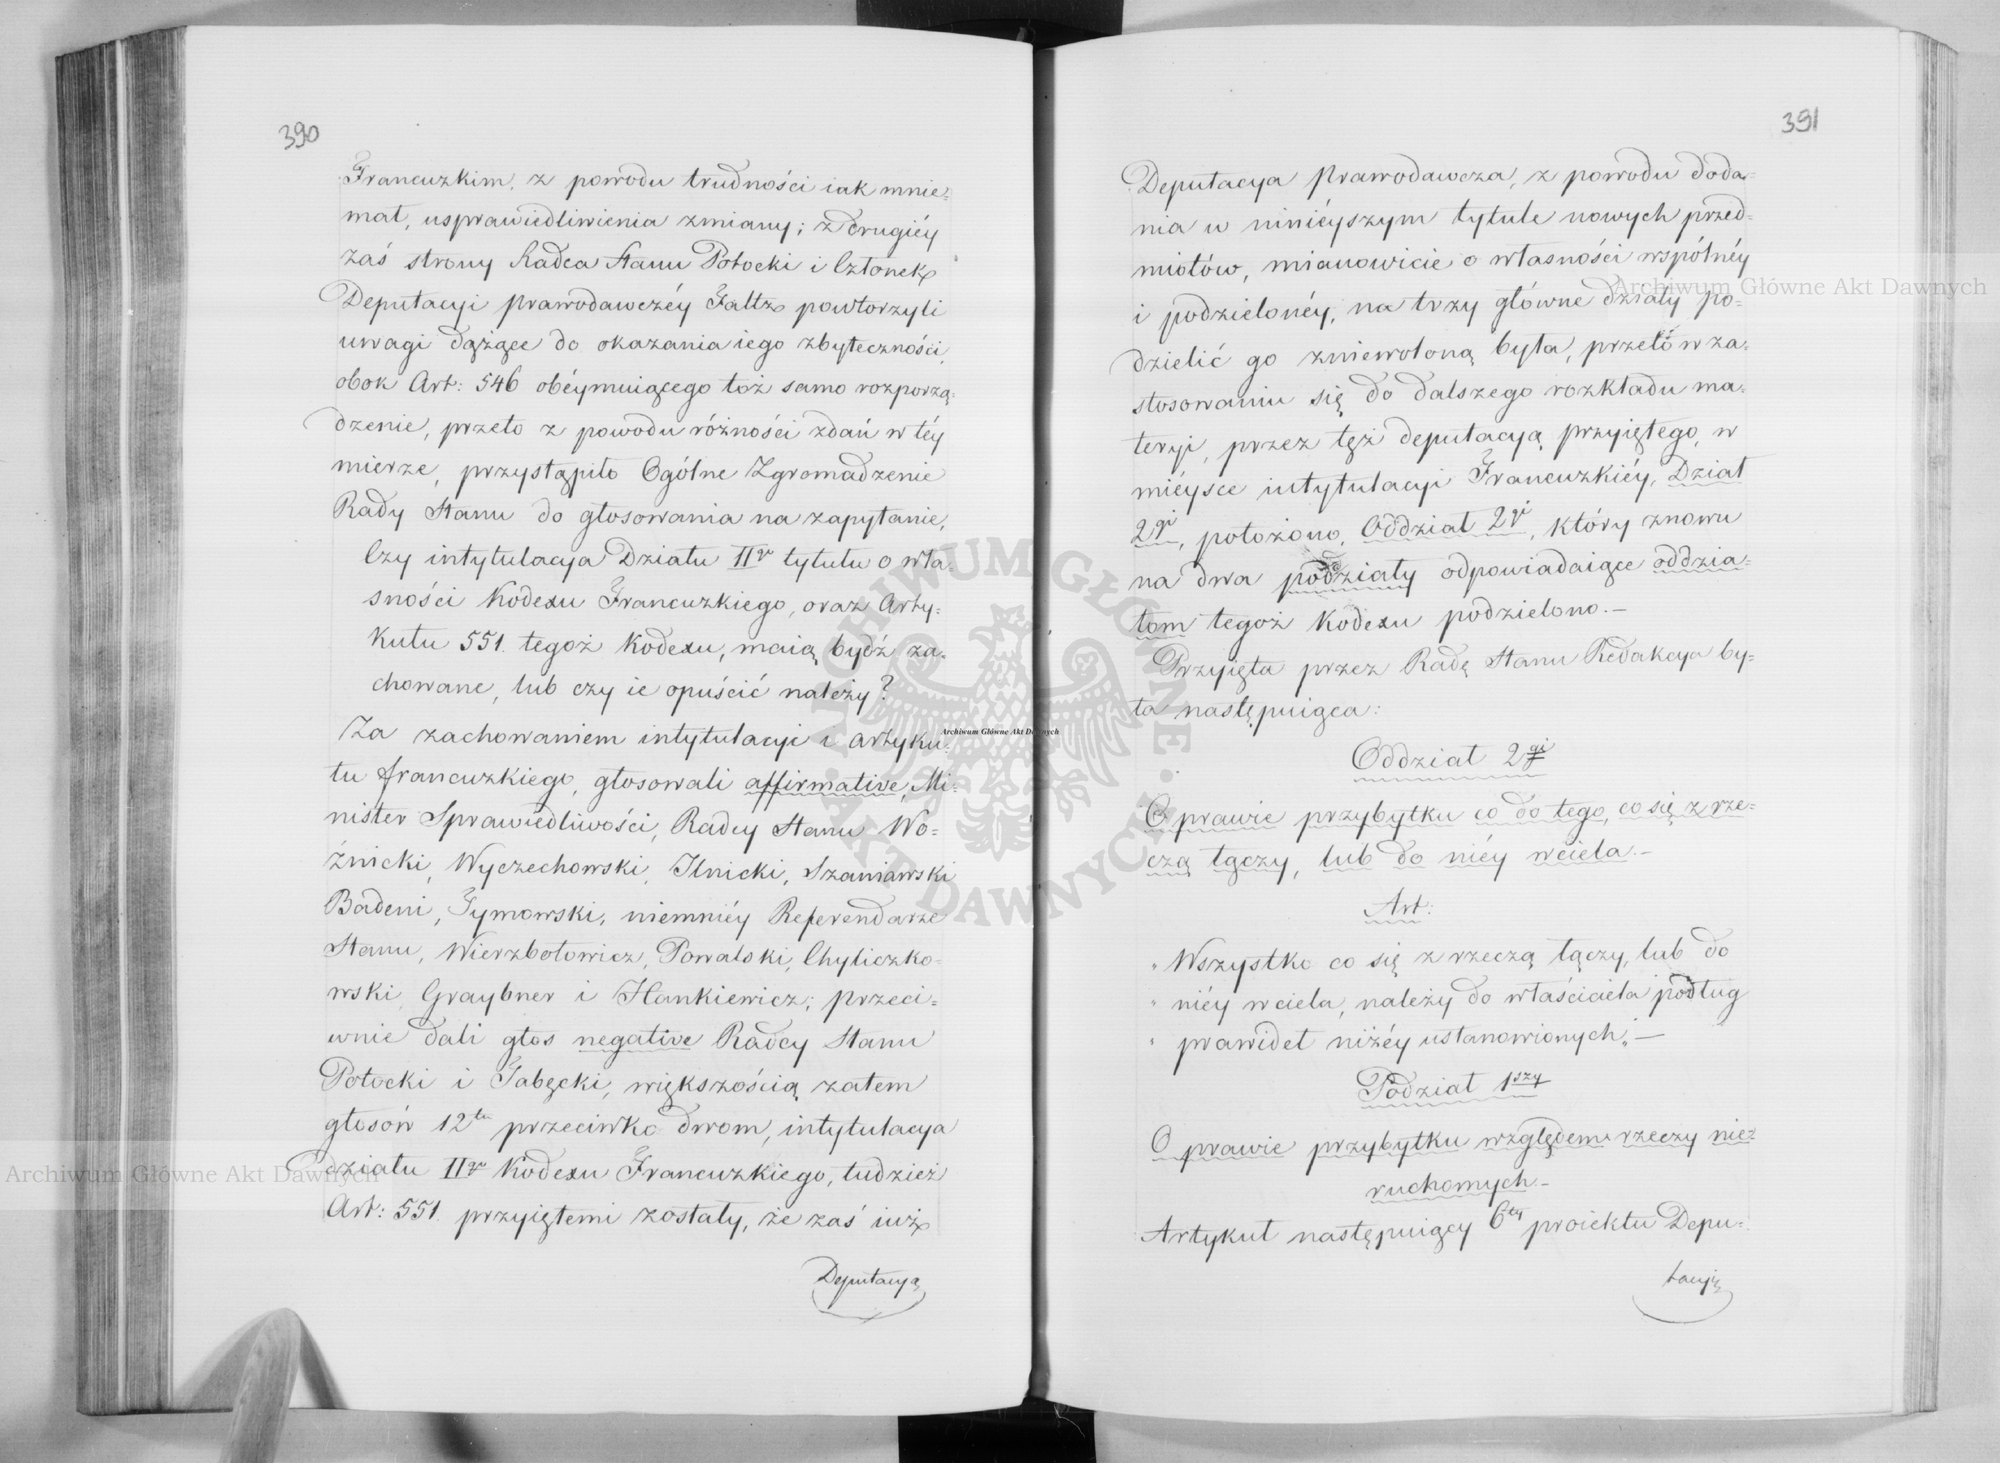 390
Francuzkim, z powodu trudności iak mnie=
mał, usprawiedliwienia zmiany; z drugiéy
zaś strony Radca Stanu Potocki i Członek
Deputacyi Prawodawczéy Faltz powtorzyli
uwagi dążące do okazania iego zbyteczności,
obok Art: 546 obéymuiącego toż samo rozporzą=
dzenie, przeto z powodu różności zdań w téy
mierze, przystąpiło Ogólne Zgromadzenie
Rady Stanu do głosowania na zapytanie,
Czy intytulacya Działu IIgo tytułu o wła=
sności Kodexu Francuzkiego, oraz Arty=
kułu 551. tegoż Kodexu, maią bydź za=
chowane, lub czy ie opuścić należy?
Za zachowaniem intytulacyi i artyku=
łu francuzkiego, głosowali affirmative, Mi=
nister Sprawiedliwości, Radcy Stanu Wo=
źnicki, Wyczechowski, Ilnicki, Szaniawski
Badeni, Tymowski, niemniéy Referendarze
Stanu, Wierzbołowicz, Powalski, Chyliczko=
wski, Graybner i Hankiewicz; przeci=
wnie dali głos negative Radcy Stanu
Potocki i Jabęcki, większością zatem
głosów 12tu przeciwko dwom, intytulacya
działu IIgo Kodexu Francuzkiego, tudzież
Art: 551. przyiętemi zostały, że zaś iuż
Deputacya
391
Deputacya Prawodawcza, z powodu doda=
nia w ninieyszym tytule nowych przed=
miotów, mianowicie o własności wspólnéy
i podzielonéy, na trzy główne działy po=
dzielić go zniewoloną była, przeto w za=
stosowaniu się do dalszego rozkładu ma=
teryi, przez tęż deputacyą przyiętego, w
mieysce intytulacyi Francuzkiéy, Dział
2gi, położono, Oddział 2gi, który znowu
na dwa podziały odpowiadaiące oddzia=
łom tegoż Kodexu podzielono.—
Przyięta przez Radę Stanu Redakcya by=
ła następuiąca:
Oddział 2gi
O prawie przybytku co do tego, co się z rze=
czą łączy, lub do niéy wciela.—
Art:
„Wszystko co się z rzeczą łączy, lub do
„niéy wciela, należy do właściciela podług
„prawideł niżéy ustanowionych„.—
Podział 1szy
O prawie przybytku względem rzeczy nie=
ruchomych.—
Artykuł następuiący 6ty proiektu Depu=
tacyi
Archiwum Główne Akt Dawnych
Archiwum Główne Akt Dawnych
Archiwum Główne Akt Dawnych
ARCHIWUM GŁÓWNE AKT DAWNYCH